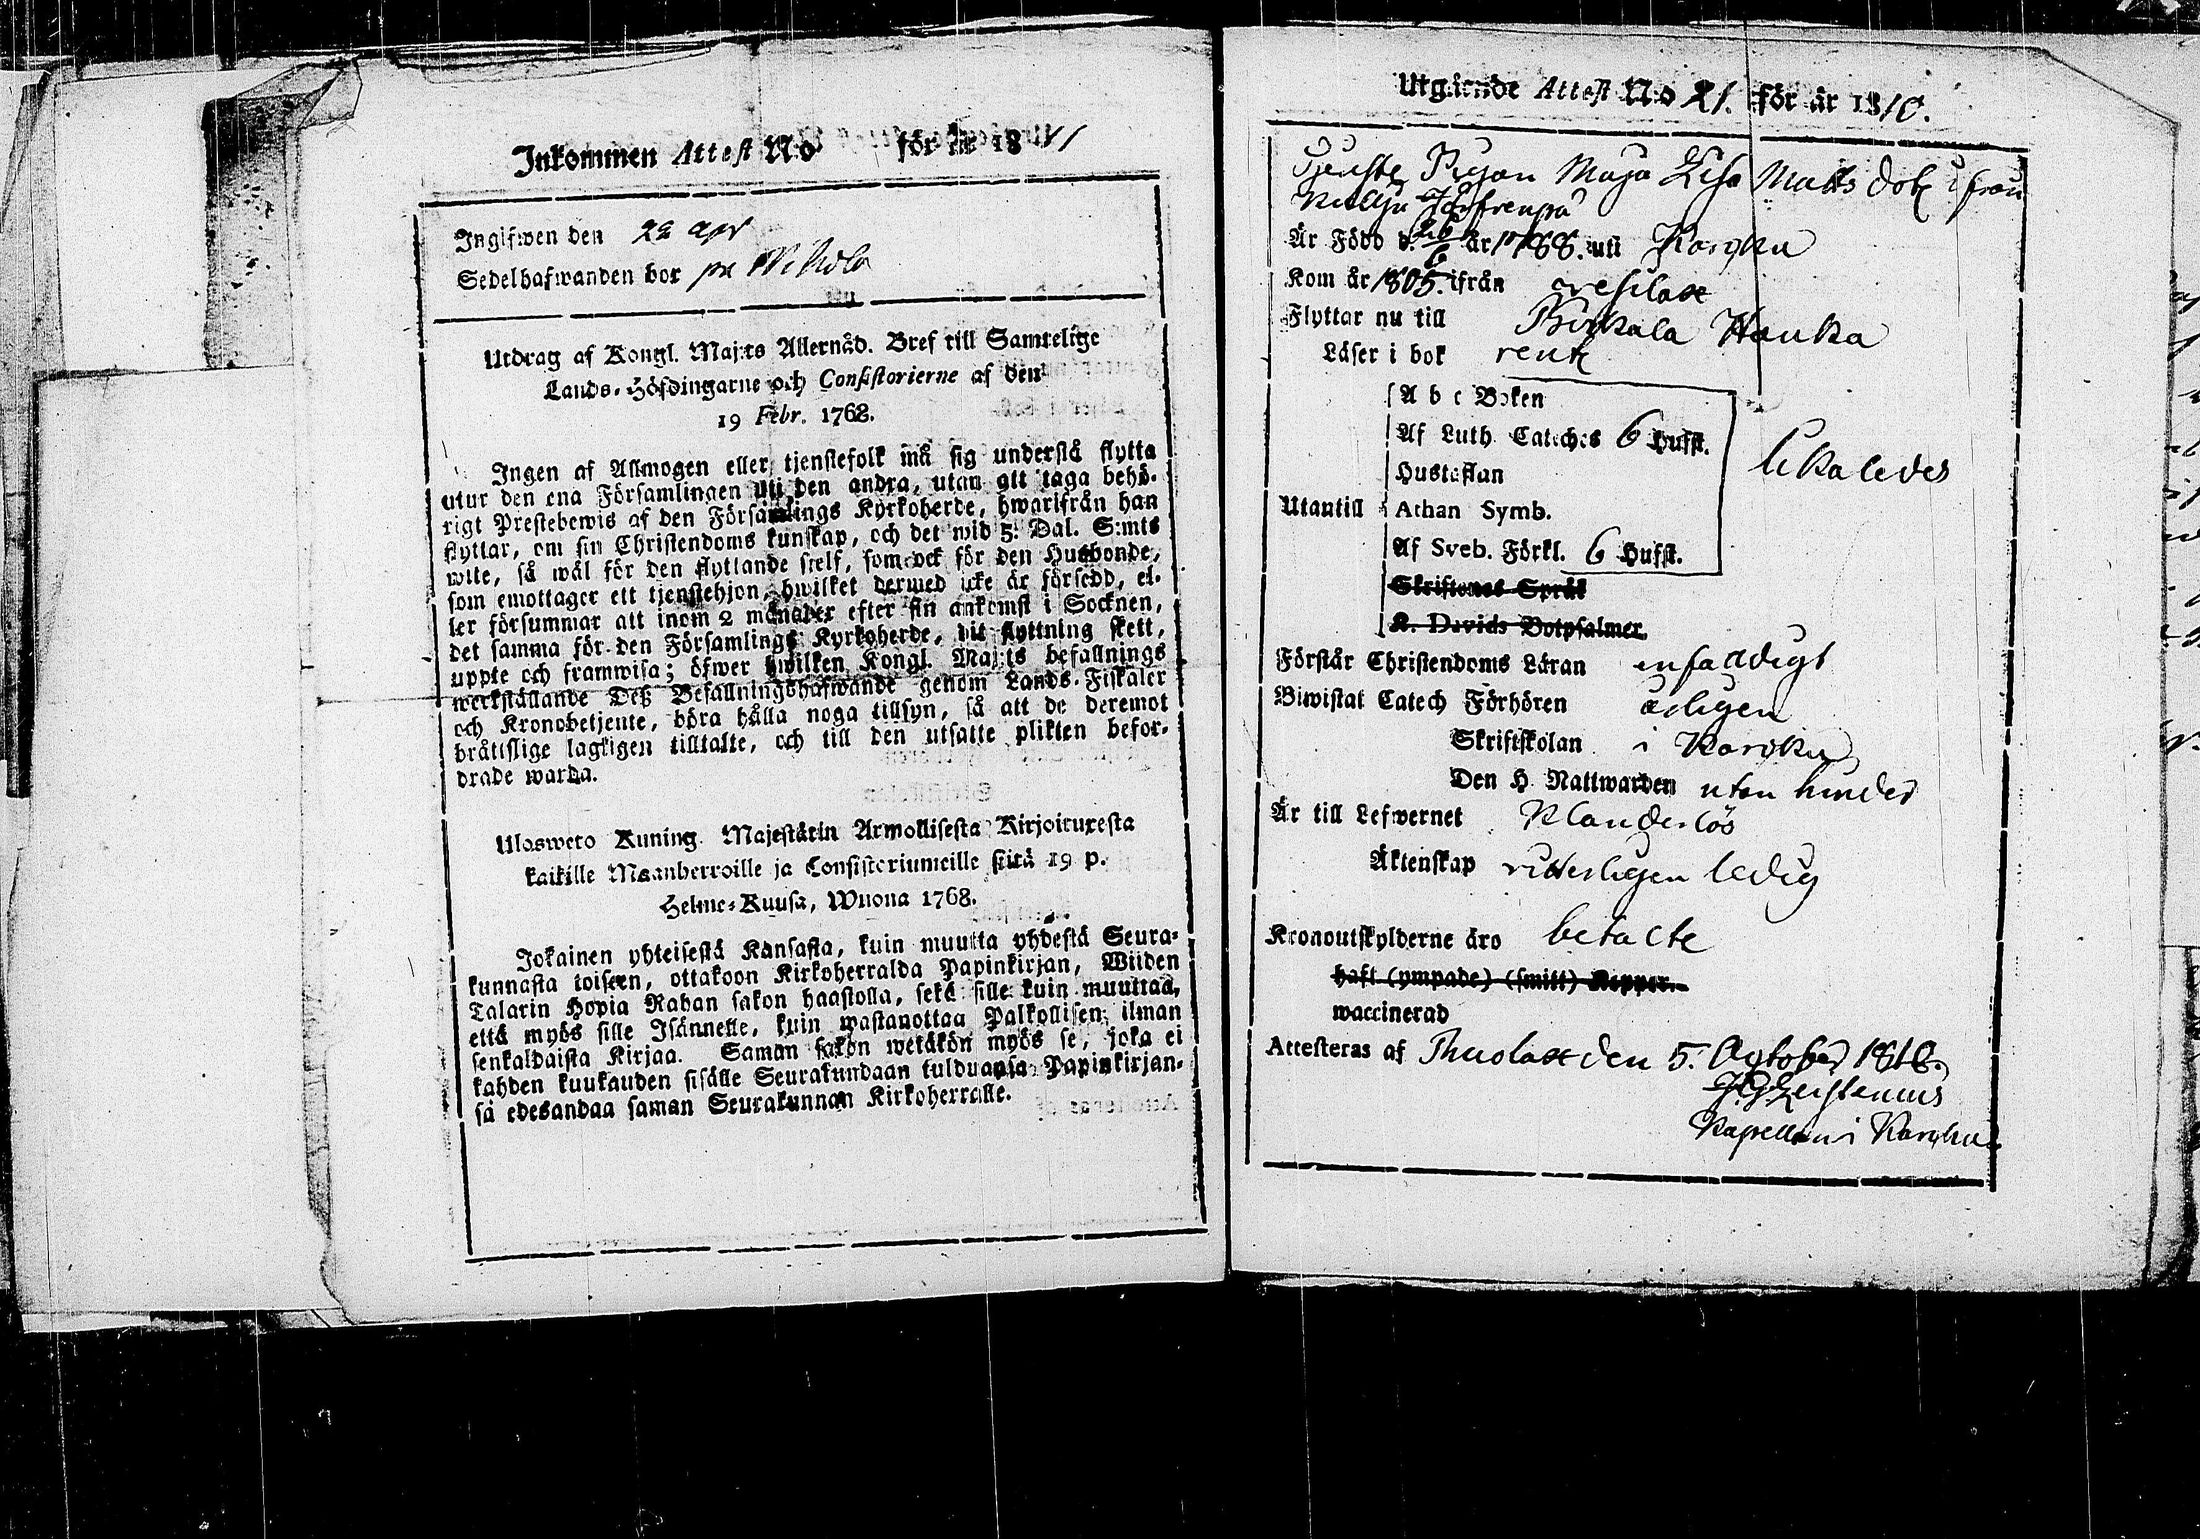 Inkommen Attest No för år 1811
Ingifwen den 22 apr
Sedelhafwanden bor på
Utdrag af Kongl. Maj:ts Allernåd. Bref till Samtelige
Lands-Höfdingarne och Consistorierne af den
19 Febr. 1768.
Ingen af Allmogen eller tjenstefolk må sig understå flytta
utur den ena Församlingen uti den andra, utan att taga behö-
rigt Prestebewis af den Församlings Kyrkoherde, hwarifrån han
flyttar, om sin Christendoms kunskap, och det wid 5. Dal. S:mts
wite, så wäl för den flyttande sielf, som ock för den Husbonde,
som emottager ett tjenstehjon, hwilket dermed icke är försedd, el-
ler försummar att inom 2 månader efter sin ankomst i Socknen,
det samma för den Församlings Kyrkoherde, dit flyttning skett,
uppte och framwisa; öfwer hwilken Kongl. Maj:ts befallnings
werkställande Deß Befallningshafwande genom Lands-Fiskaler
och Kronobetjente, böra hålla noga tillsyn, så att de deremot
bråttslige lagligen tilltalte, och till den utsatte plikten befor-
drade warda.
Ulosweto Kuning. Majestätin Armollisesta Kirjoituxesta
kaikille Maanherroille ja Consistoriumeille siitä 19 p.
Helme-Kuusa, Wuona 1768.
Jokainen yhteisestä Kansasta, kuin muutta yhdestä Seura-
kunnasta toiseen, ottakoon Kirkoherralda Papinkirjan, Wiiden
Talarin Hopia Rahan sakon haastolla, sekä sille kuin muuttaa,
että myös sille Isännelle, kuin wastanottaa Palkollisen ilman
senkaldaista Kirjaa. Saman sakon wetäkön myös se, joka ei
kahden kuukauden sisälle Seurakundaan tulduansa Papinkirjan-
sa edesandaa saman Seurakunnan Kirkoherralle.
Utgående Attest No 21. för år 1810.
Tjenste Pigan Maja Lisa Matts dotr ifrån
Är Född d. 26/6 år 1788. uti Karcku
Kom år 1805. ifrån
Flyttar nu till Birkala Hauka
Läser i bok rent
A b c Boken
Af Luth. Cateches 6 Hufst.
Hustaflan likaledes
Utantill Athan Symb.
Af Sveb. Förkl. 6 Hufst.
Skriftenes Språk
K. Davids Botpsalmer
Förstår Christendoms Läran enfalldigt
Biwistat Catech Förhören årligen
Skriftskolan i Karcku
Den H. Nattwarden utan hinder
Är till Lefwernet Klanderlös
Äktenskap ledig
Kronoutskylderne äro betalte
haft (ympade) (smitt) Kopper.
waccinerad
Attesteras af den 5. October 1810.
Kapellan i Karcku